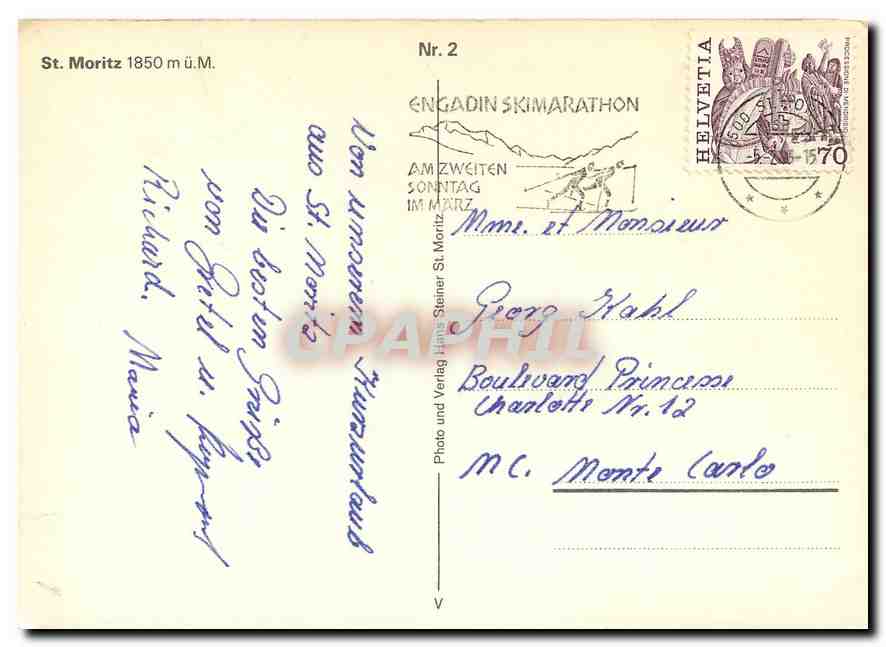 St. Moritz 1850 m ü.M.
Nr. 2
ENGADIN SKIMARATHON
AM ZWEITEN
SONNTAG
IM MÄRZ
HELVETIA
PROCESSIONE DI MENDRISIO
70
Von unserem Kurzurlaub
aus St. Moritz
Die besten Grüße
von Gretel u.
Richard. Maria
Photo und Verlag Hans Steiner St. Moritz
V
Mme. et Monsieur
Georg Kahl
Boulevard Princesse
Charlotte Nr. 12
MC. Monte Carlo
CPAPHIL